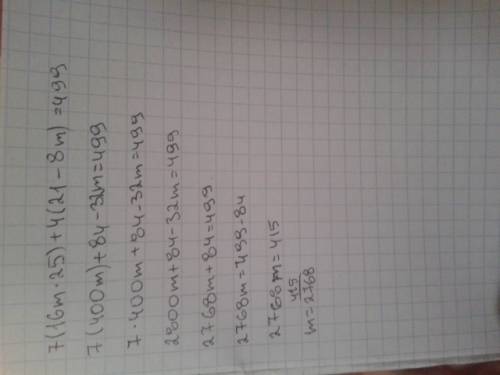 7(16m·25)+4(21-8m)=499
7(400m)+84-32m=499
7·400m+84-32m=499
2800m+84-32m=499
2768m+84=499
2768m=499-84
2768m=415
m=415/2768